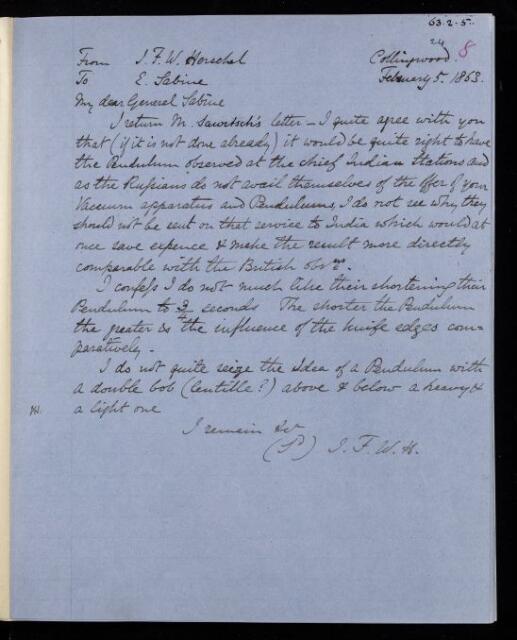 63.2.5.
24 8
From J. F. W. Herschel Collingwood.
To E. Sabine February 5. 1863.
My dear General Sabine
I return M. Sawitsch's letter - I quite agree with you
that (if it is not done already) it would be quite right to have
the Pendulum observed at the chief Indian Stations and
as the Russians do not avail themselves of the offer of your
Vacuum apparatus and Pendulums, I do not see why they
should not be sent on that service to India which would at
once save expence & make the result more directly
comparable with the British obsns.
I confess I do not much like their shortening their
Pendulum to 3/4 seconds The shorter the Pendulum
the greater is the influence of the knife edges com-
paratively -
I do not quite seize the Idea of a Pendulum with
a double bob (lentille?) above & below a heavy &
a light one
I remain &c
(Sd) J. F. W. H.